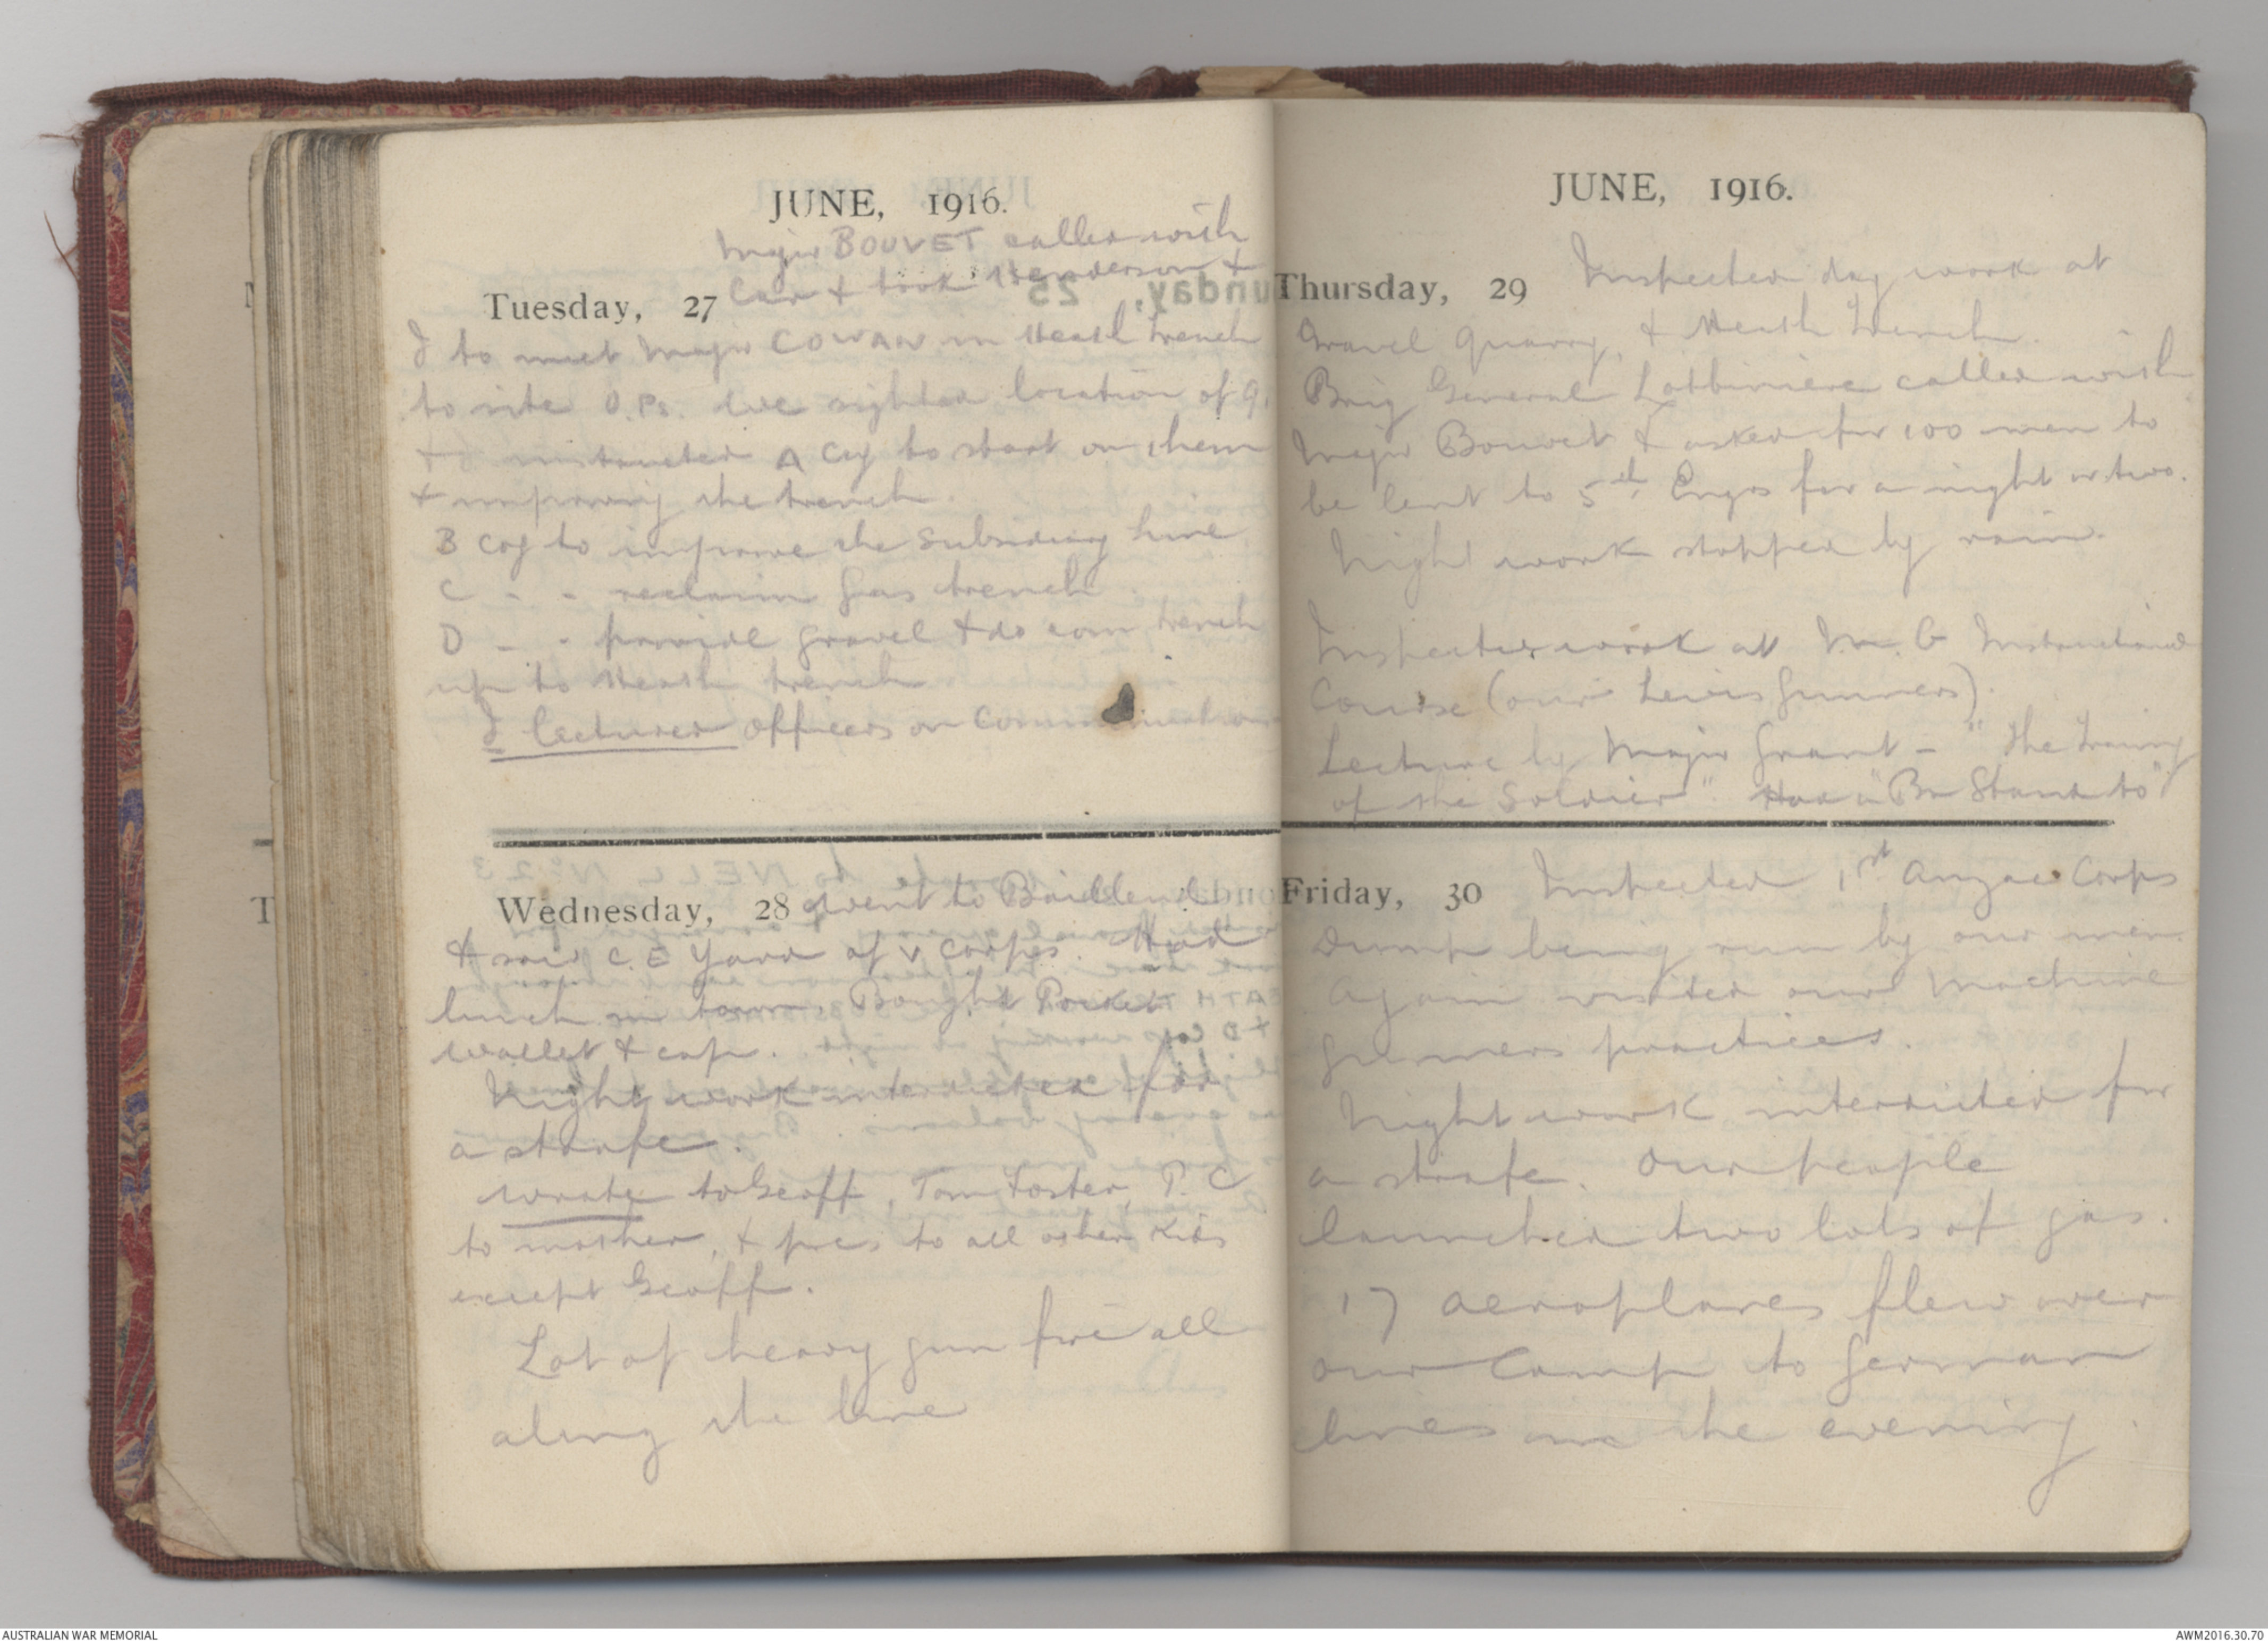 JUNE, 1916.
Major BOUVET called with
Tuesday, 27 Car & took Henderson &
I to meet Major COWAN in Heath trench
to site O.Ps. We sighted location of 9.
& instructed A Coy to start on them
& improving the trench.
B Coy to improve the Subsidiary Line
C - - reclaim Gas trench.
D - - provide gravel & do com trench
up to Heath trench
I lectured Officers on Communication
Wednesday, 28 went to Bailleul
& saw C.E Yard of V Corps. Had
lunch in town. Bought Pocket
wallet & cap.
Night work interdicted for
a strafe.
wrote to Geoff, Tom Foster, P.C
to mother, & pcs to all other kids
except Geoff.
Lot of heavy gun fire all
along the line
JUNE, 1916.
Thursday, 29 Inspected day work at
Gravel Quarry, & Heath Trench.
Brig General Lotbiniere called with
Major Bouvet & asked for 100 men to
be lent to 5th Engrs for a night or two.
Night work stopped by rain.
Inspected work at M.G Instructional
Course (our Lewis Gunners).
Lecture by Major Grant - "The Training
of the Soldier". Had a "Bn Stand to"
Friday, 30 Inspected 1st Anzac Corps
Dump being run by our men.
Again visited our Machine
gunners practices.
Night work interdicted for
a strafe. Our people
launched two lots of gas.
17 aeroplanes flew over
our Camp to German
lines in the evening.
AUSTRALIAN WAR MEMORIAL
AWM2016.30.70